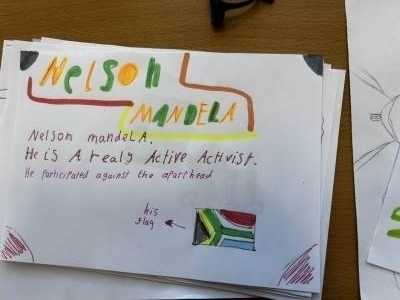 Nelson
MANDELA
Nelson mandeLA.
He is A realy Active Activist.
He participated against the aparthead
his
flag